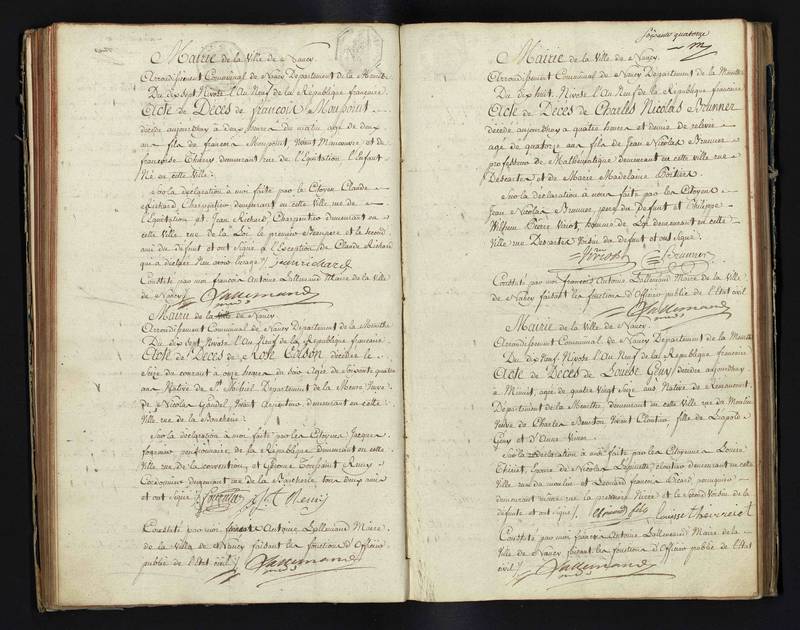 Mairie de la Ville de Nancy
Arrondissement Communal de Nancy Département de la Meurthe
Du dix sept Nivose L'An Neuf de la République française
Acte de Décès de françois Monpoint
décédé aujourdhuy a deux heures du matin agé de deux
ans fils de francois Monpoint Manœuvre et de
francoise Thiery demeurant rue de l'Equitation l'Enfant
Né en cette Ville :
Sur la déclaration a moi faite par le Citoyen Claude
Richard Charpentier demeurant en cette Ville rue de
l'Equitation et Jean Richard Charpentier demeurant en
cette Ville rue de la Loi le premier et le second
ami du défunt et ont signé a l'Exception de Claude Richard
qui a déclaré jean richard
Constaté par moi françois Antoine Lallemand Maire de la Ville
de Nancy Lallemand
Mairie de la Ville de Nancy
Arrondissement Communal de Nancy Département de la Meurthe
Du dix sept Nivose l'An Neuf de la République francaise
Acte de Décès de Rose Colson décédée le
Seize du courant a onze heures du soir agée de soixante quatre
ans Native de St. Mihiel Département de la Meuse Veuve
de Nicolas Gaudel Vivant Arpenteur demeurant en cette
Ville rue de la Boucherie
Sur la déclaration a moi faite par les Citoyens Jacque
pensionnaire de la République demeurant en cette
Ville rue de la convention et Toussaint
Cordonnier demeurant rue de la Boucherie tous deux amis
et ont signé
Constaté par moi francois Antoine Lallemand Maire
de la Ville de Nancy faisant les fonctions d'Officier
public de l'Etat civil Lallemand
soixante quatorze
Mairie de la Ville de Nancy
Arrondissement Communal de Nancy Département de la Meurthe
Du dix huit Nivose l'An Neuf de la République francaise
Acte de Décès de Charles Nicolas Brunner
décédé aujourdhuy a quatre heures et demie de relevée
agé de quatorze ans fils de Jean Nicolas Brunner
professeur de Mathématique demeurant en cette ville rue
Descartes et de Marie Madelaine Poitier
Sur la déclaration à nous faite par les Citoyens
Jean Nicolas Brunner, père du Defunt et Philippe
Wilhem Pierre Viriot, homme de Loi demeurant en cette
Ville rue Descartes Voisin du défunt et ont signé
Viriot Brunner
Constaté par moi francois Antoine Lallemand Maire de la Ville
de Nancy faisant les fonctions d'Officier public de l'Etat civil
Lallemand
Mairie de la Ville de Nancy
Arrondissement Communal de Nancy Département de la Meurthe
Du dix Neuf Nivose l'An Neuf de la République francaise
Acte de Décès de Louise Geny décédée aujourdhuy
à Minuit, agée de quatre vingt Seize ans Native de
Département de la Meurthe, demeurant en cette Ville rue du Moulin
Veuve de Charles Vivant Cloutier fille de Léopold
Geny et d'Anne
Sur la Déclaration à moi faite par les Citoyens Louise
Thiriet, Epouse de Nicolas cloutier demeurant en cette
Ville rue du moulin et Léonard francois Picard perruquier
demeurant même rue la premiere Niece et le second Voisin de la
défunte et ont signé
Constaté par moi francois Antoine Lallemand Maire de la
Ville de Nancy faisant les fonctions d'Officier public de l'Etat
civil Lallemand